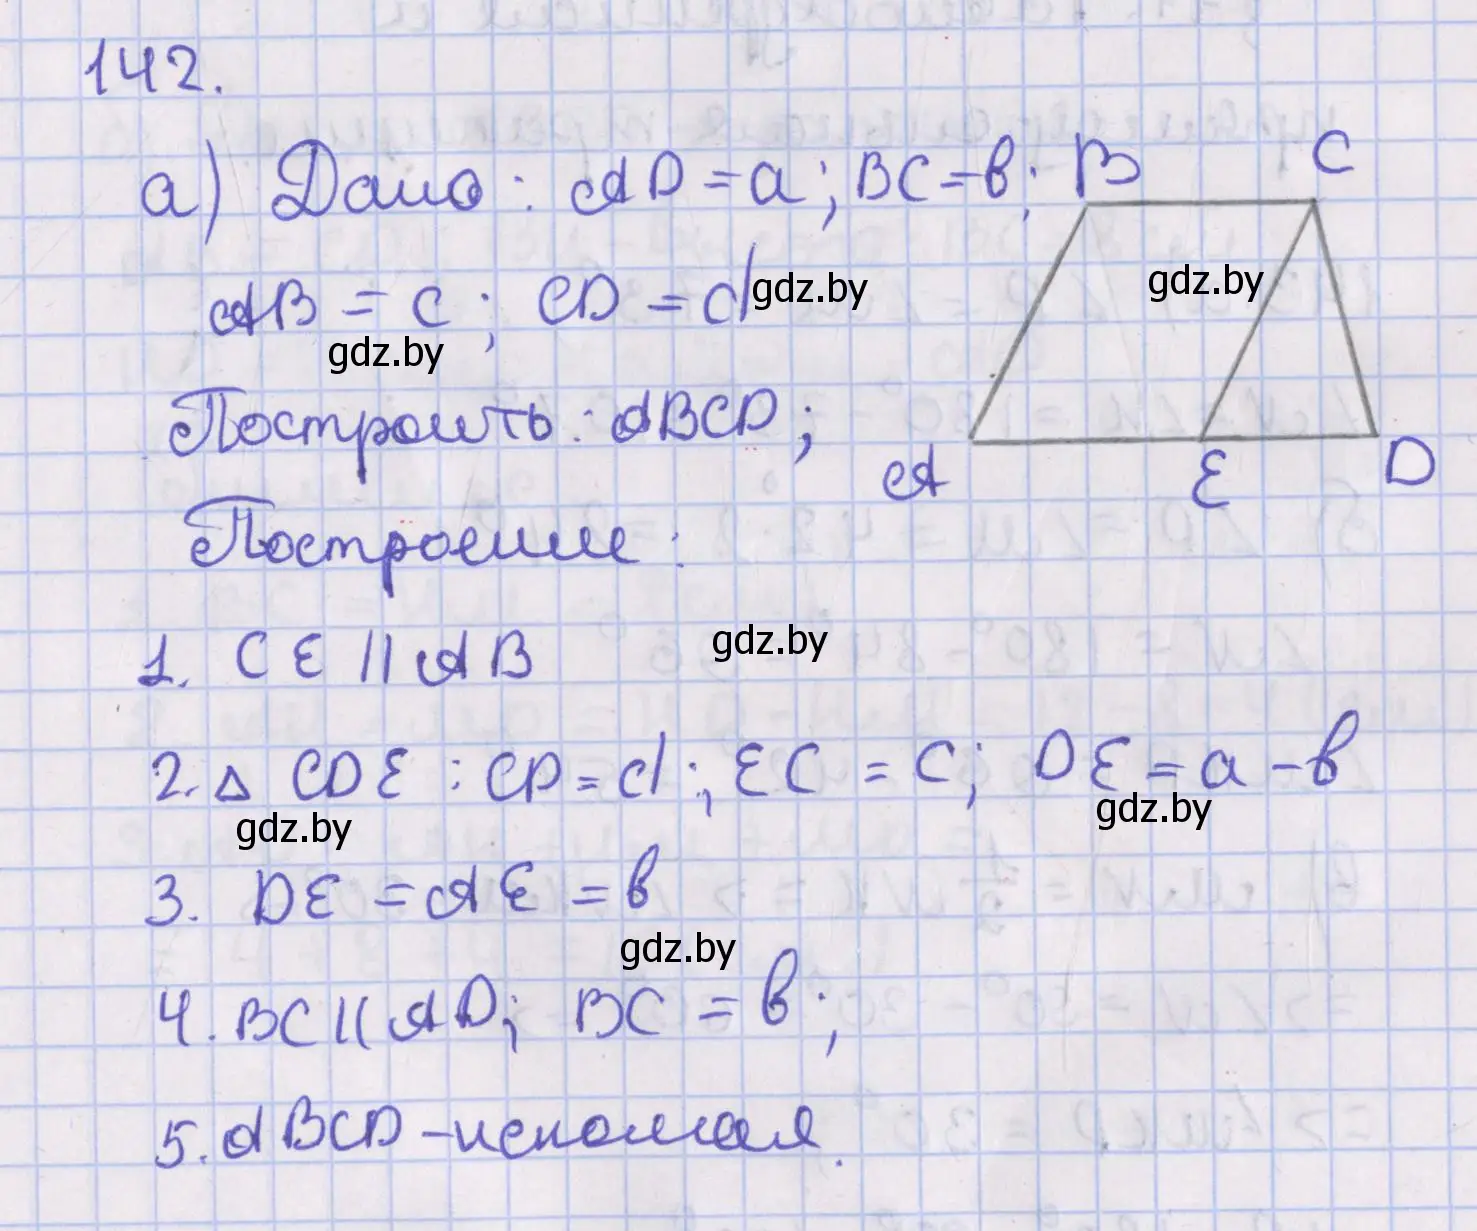 142.
а) Дано: AD = a; BC = b; B C
AB = c; CD = d gdz.by gdz.by
gdz.by
Построить: ABCD; A E D
Построение:
1. CE || AB gdz.by
2. △ CDE : CD = d; EC = C; DE = a - b
gdz.by gdz.by
3. DE = AE = b
gdz.by
4. BC || AD; BC = b;
5. ABCD - искомая.